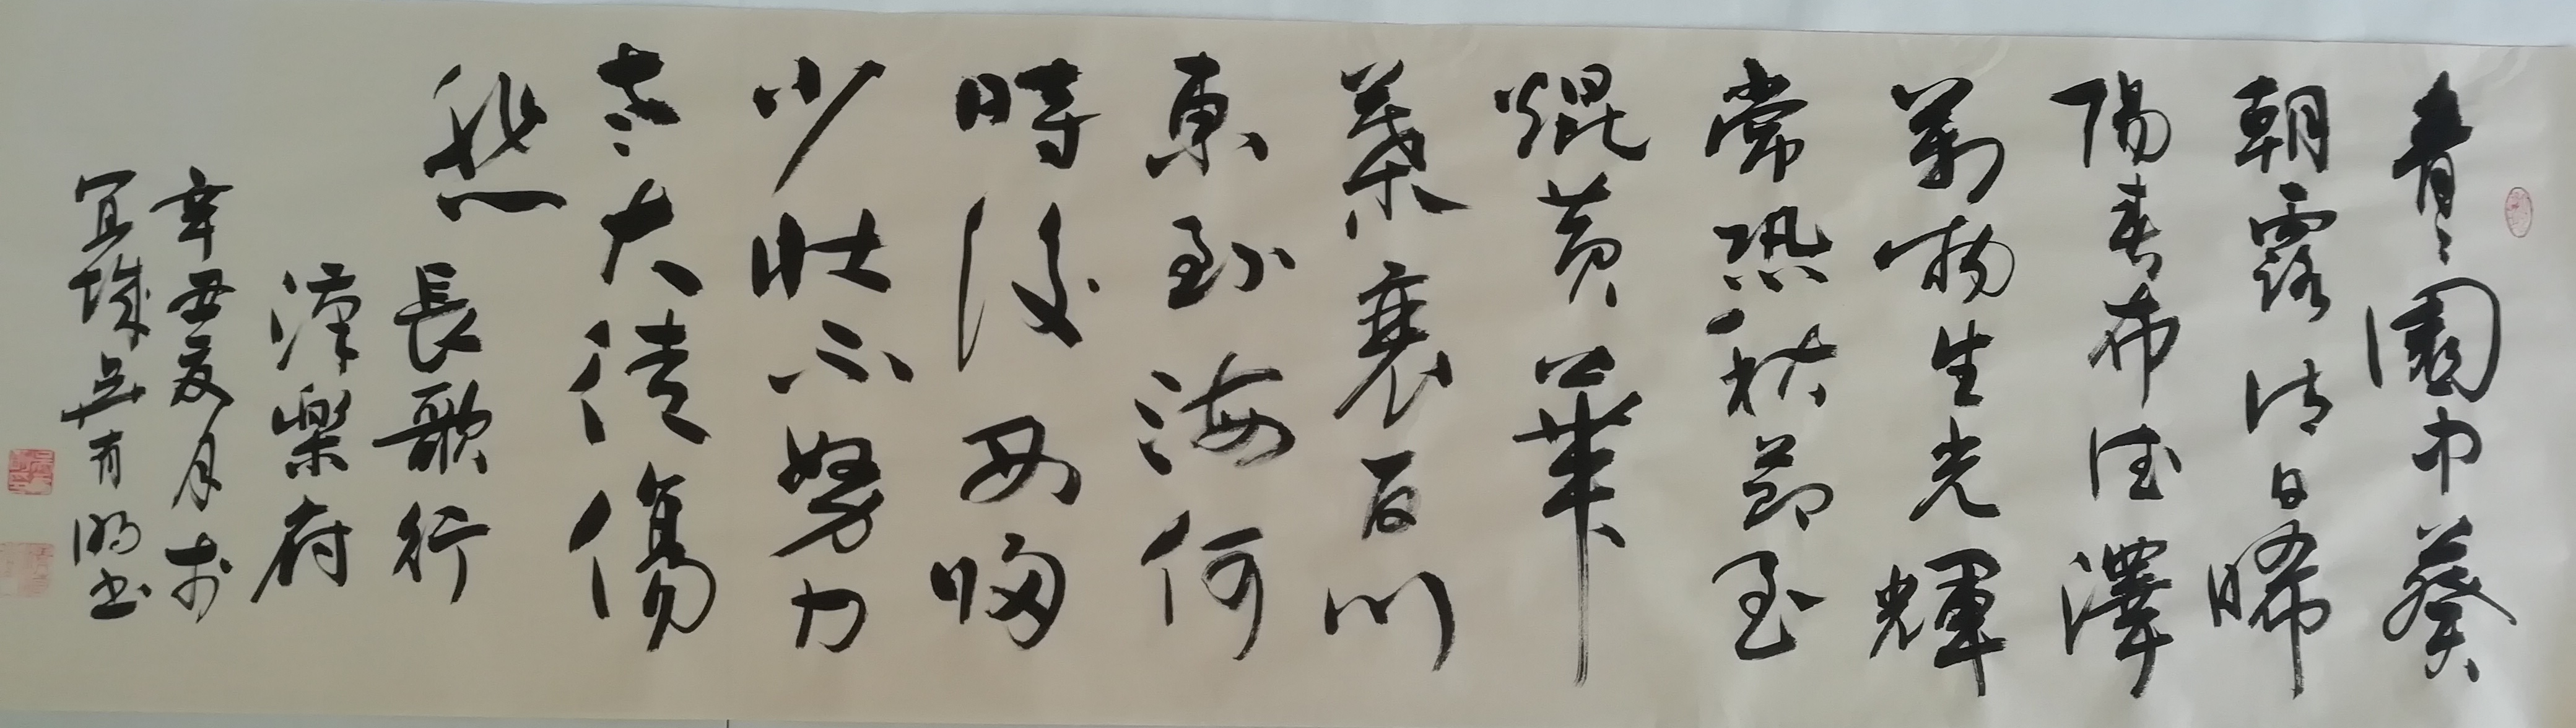 青〻園中葵
朝露待日晞
陽春布德澤
萬物生光輝
常恐秋節至
焜黃華
葉衰百川
東到海何
時復西歸
少壯不努力
老大徒傷
悲 長歌行
漢樂府
辛丑夏月於
宜城吳有明書